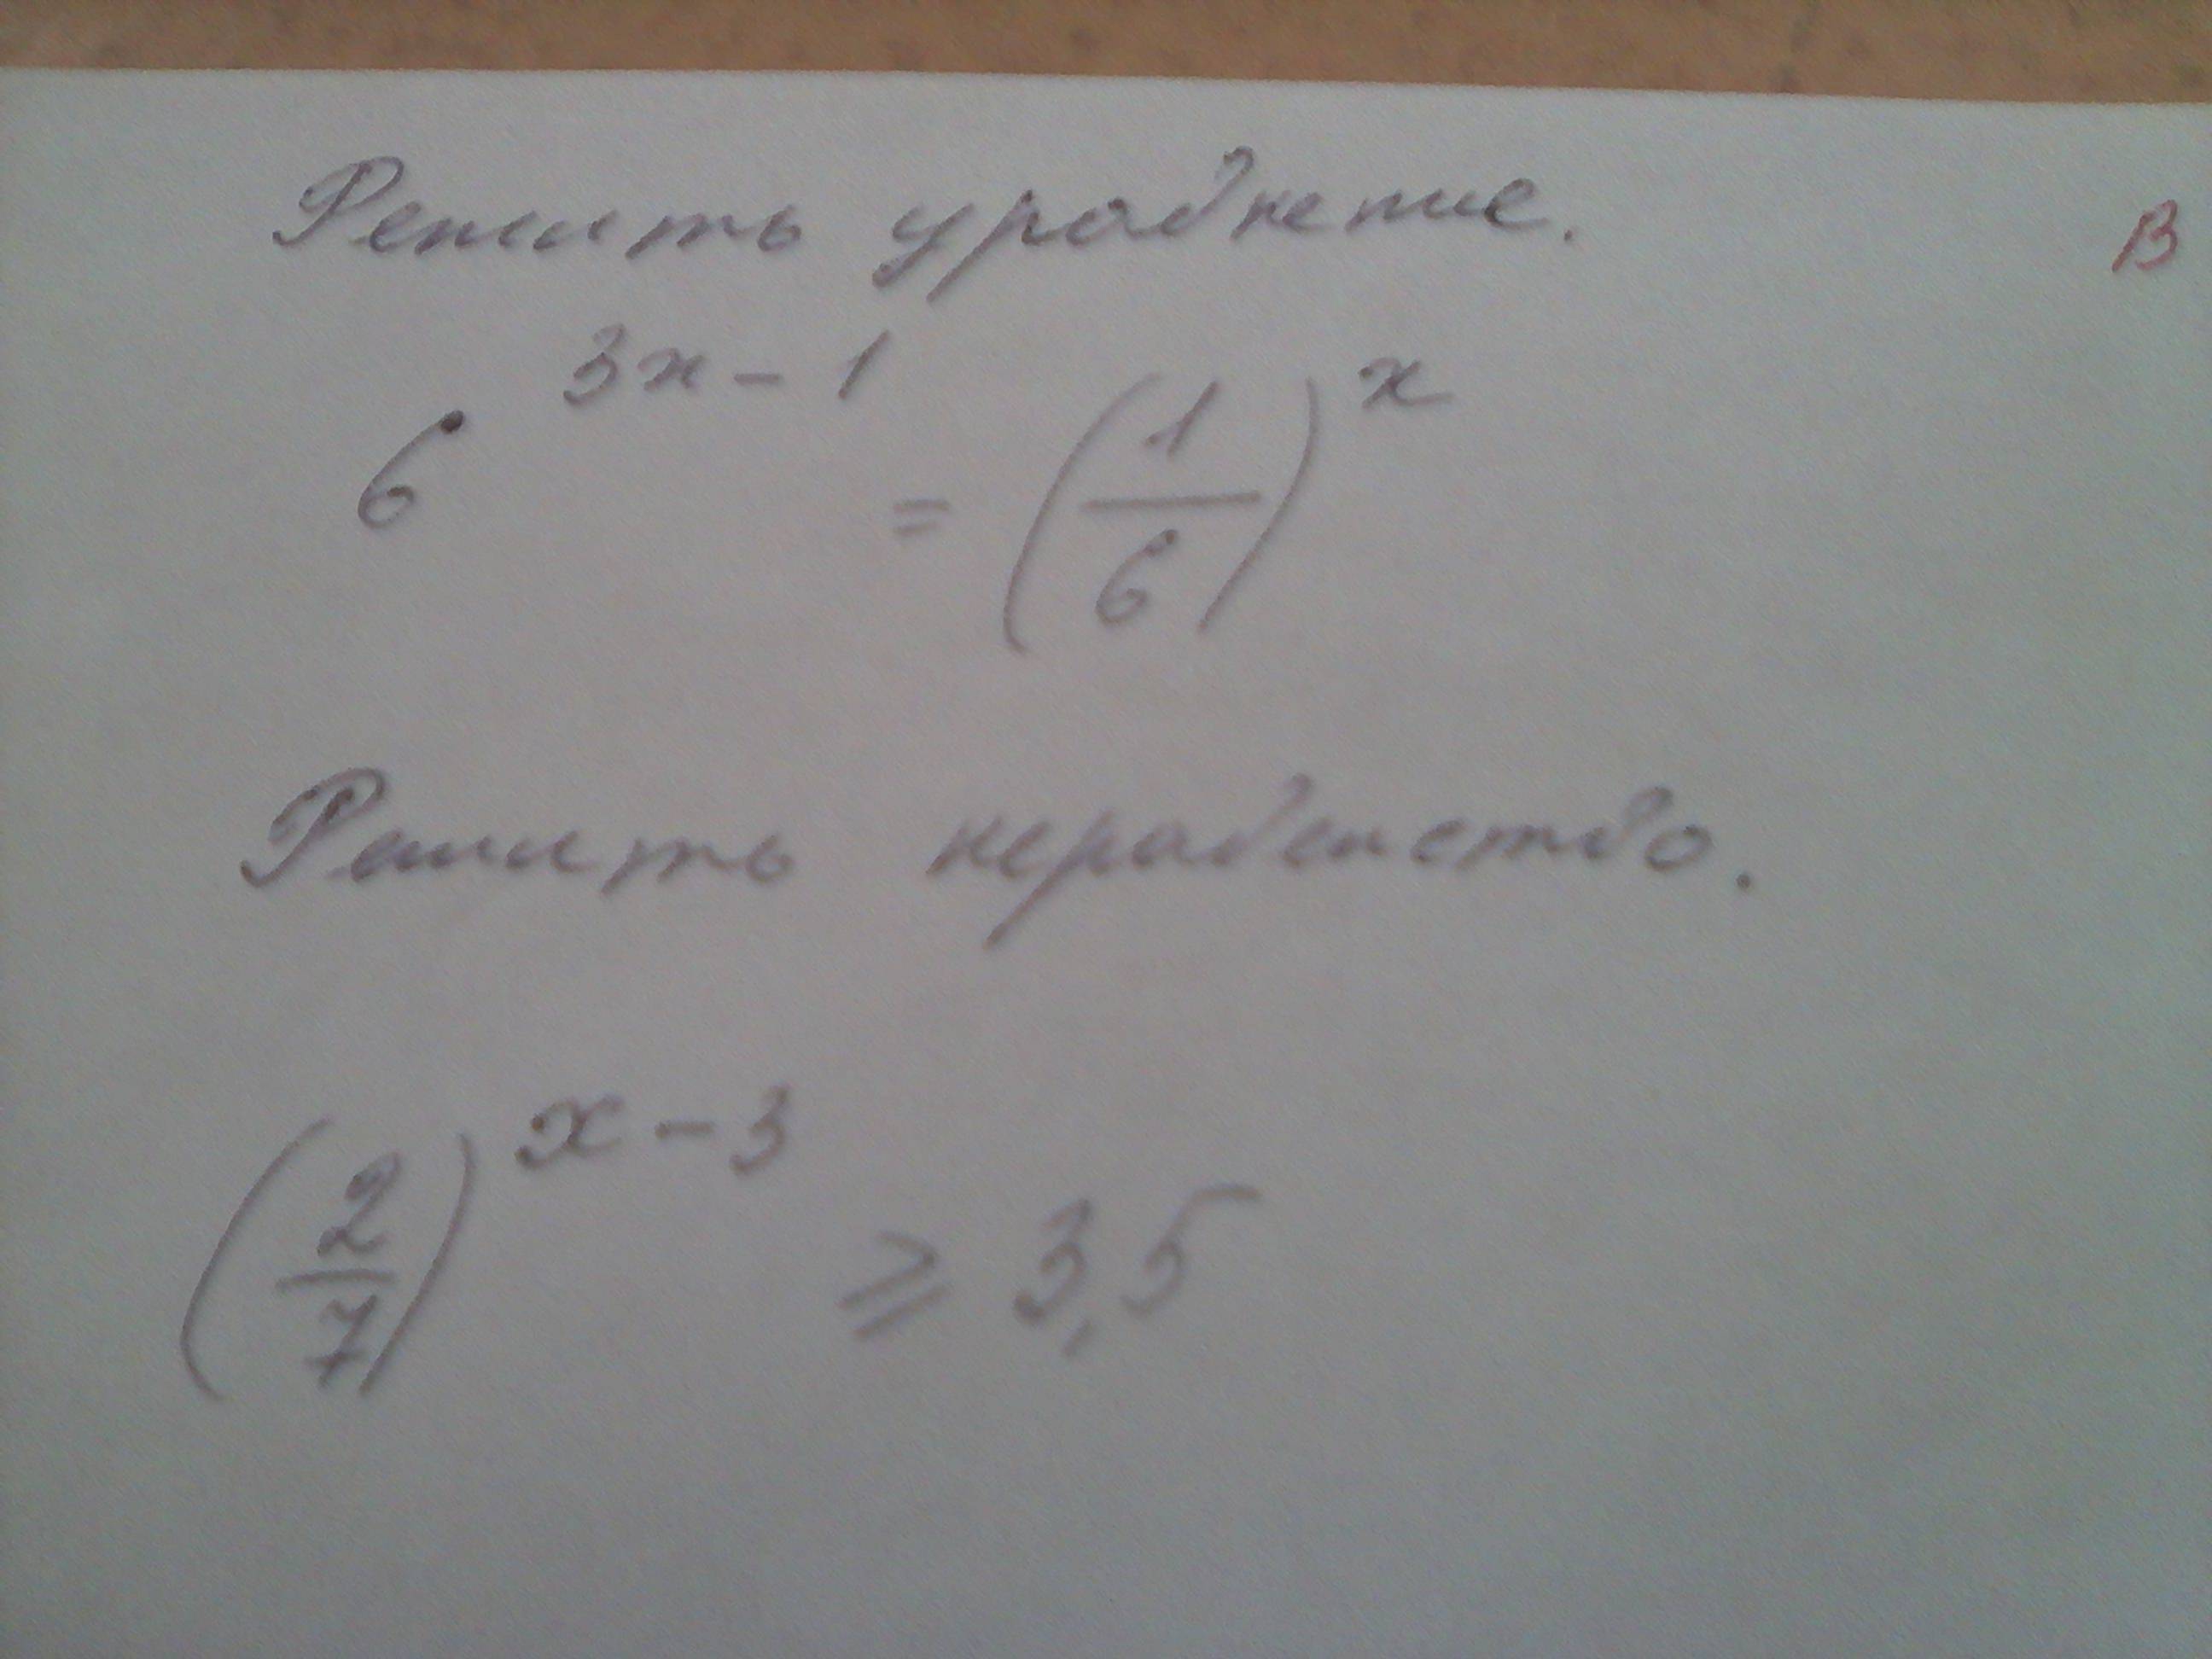 Решить уравнение.
В
6^{3x-1} = (1/6)^x
Решить неравенство.
(2/7)^{x-3} ⩾ 3,5